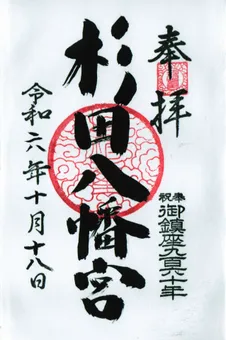 奉拝
奉祝 御鎮座九百六十年
杉田八幡宮
令和六年十月十八日